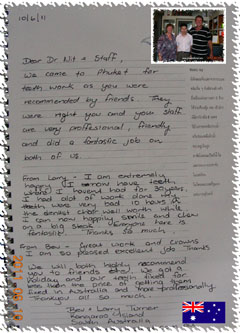 10/6/11
Dear Dr Nit + Staff,
We came to Phuket for
teeth work as you were
recommended by friends. They
were right you and your staff
are very professional, friendly
and did a fantastic job on
both of us.
From Larry - I am extremely
happy (I now have teeth
which I haven't had for 30 years.
I had a lot of work done my
teeth were very bad. 10 hours in
the dentist chair well worth while
I can now happily smile and chew
on a big steak. Everyone here is
fantastic. Thanks so much.
From Bev - Great work and crowns
I am so pleased excellent job thanks
We will both highly recommend
you to friends etc. We got a
holiday and our teeth fixed for
less than the price of getting them
fixed in Australia and more professionally
Thankyou all so much.
Bev + Larry Turner
Kangaroo Island
South Australia